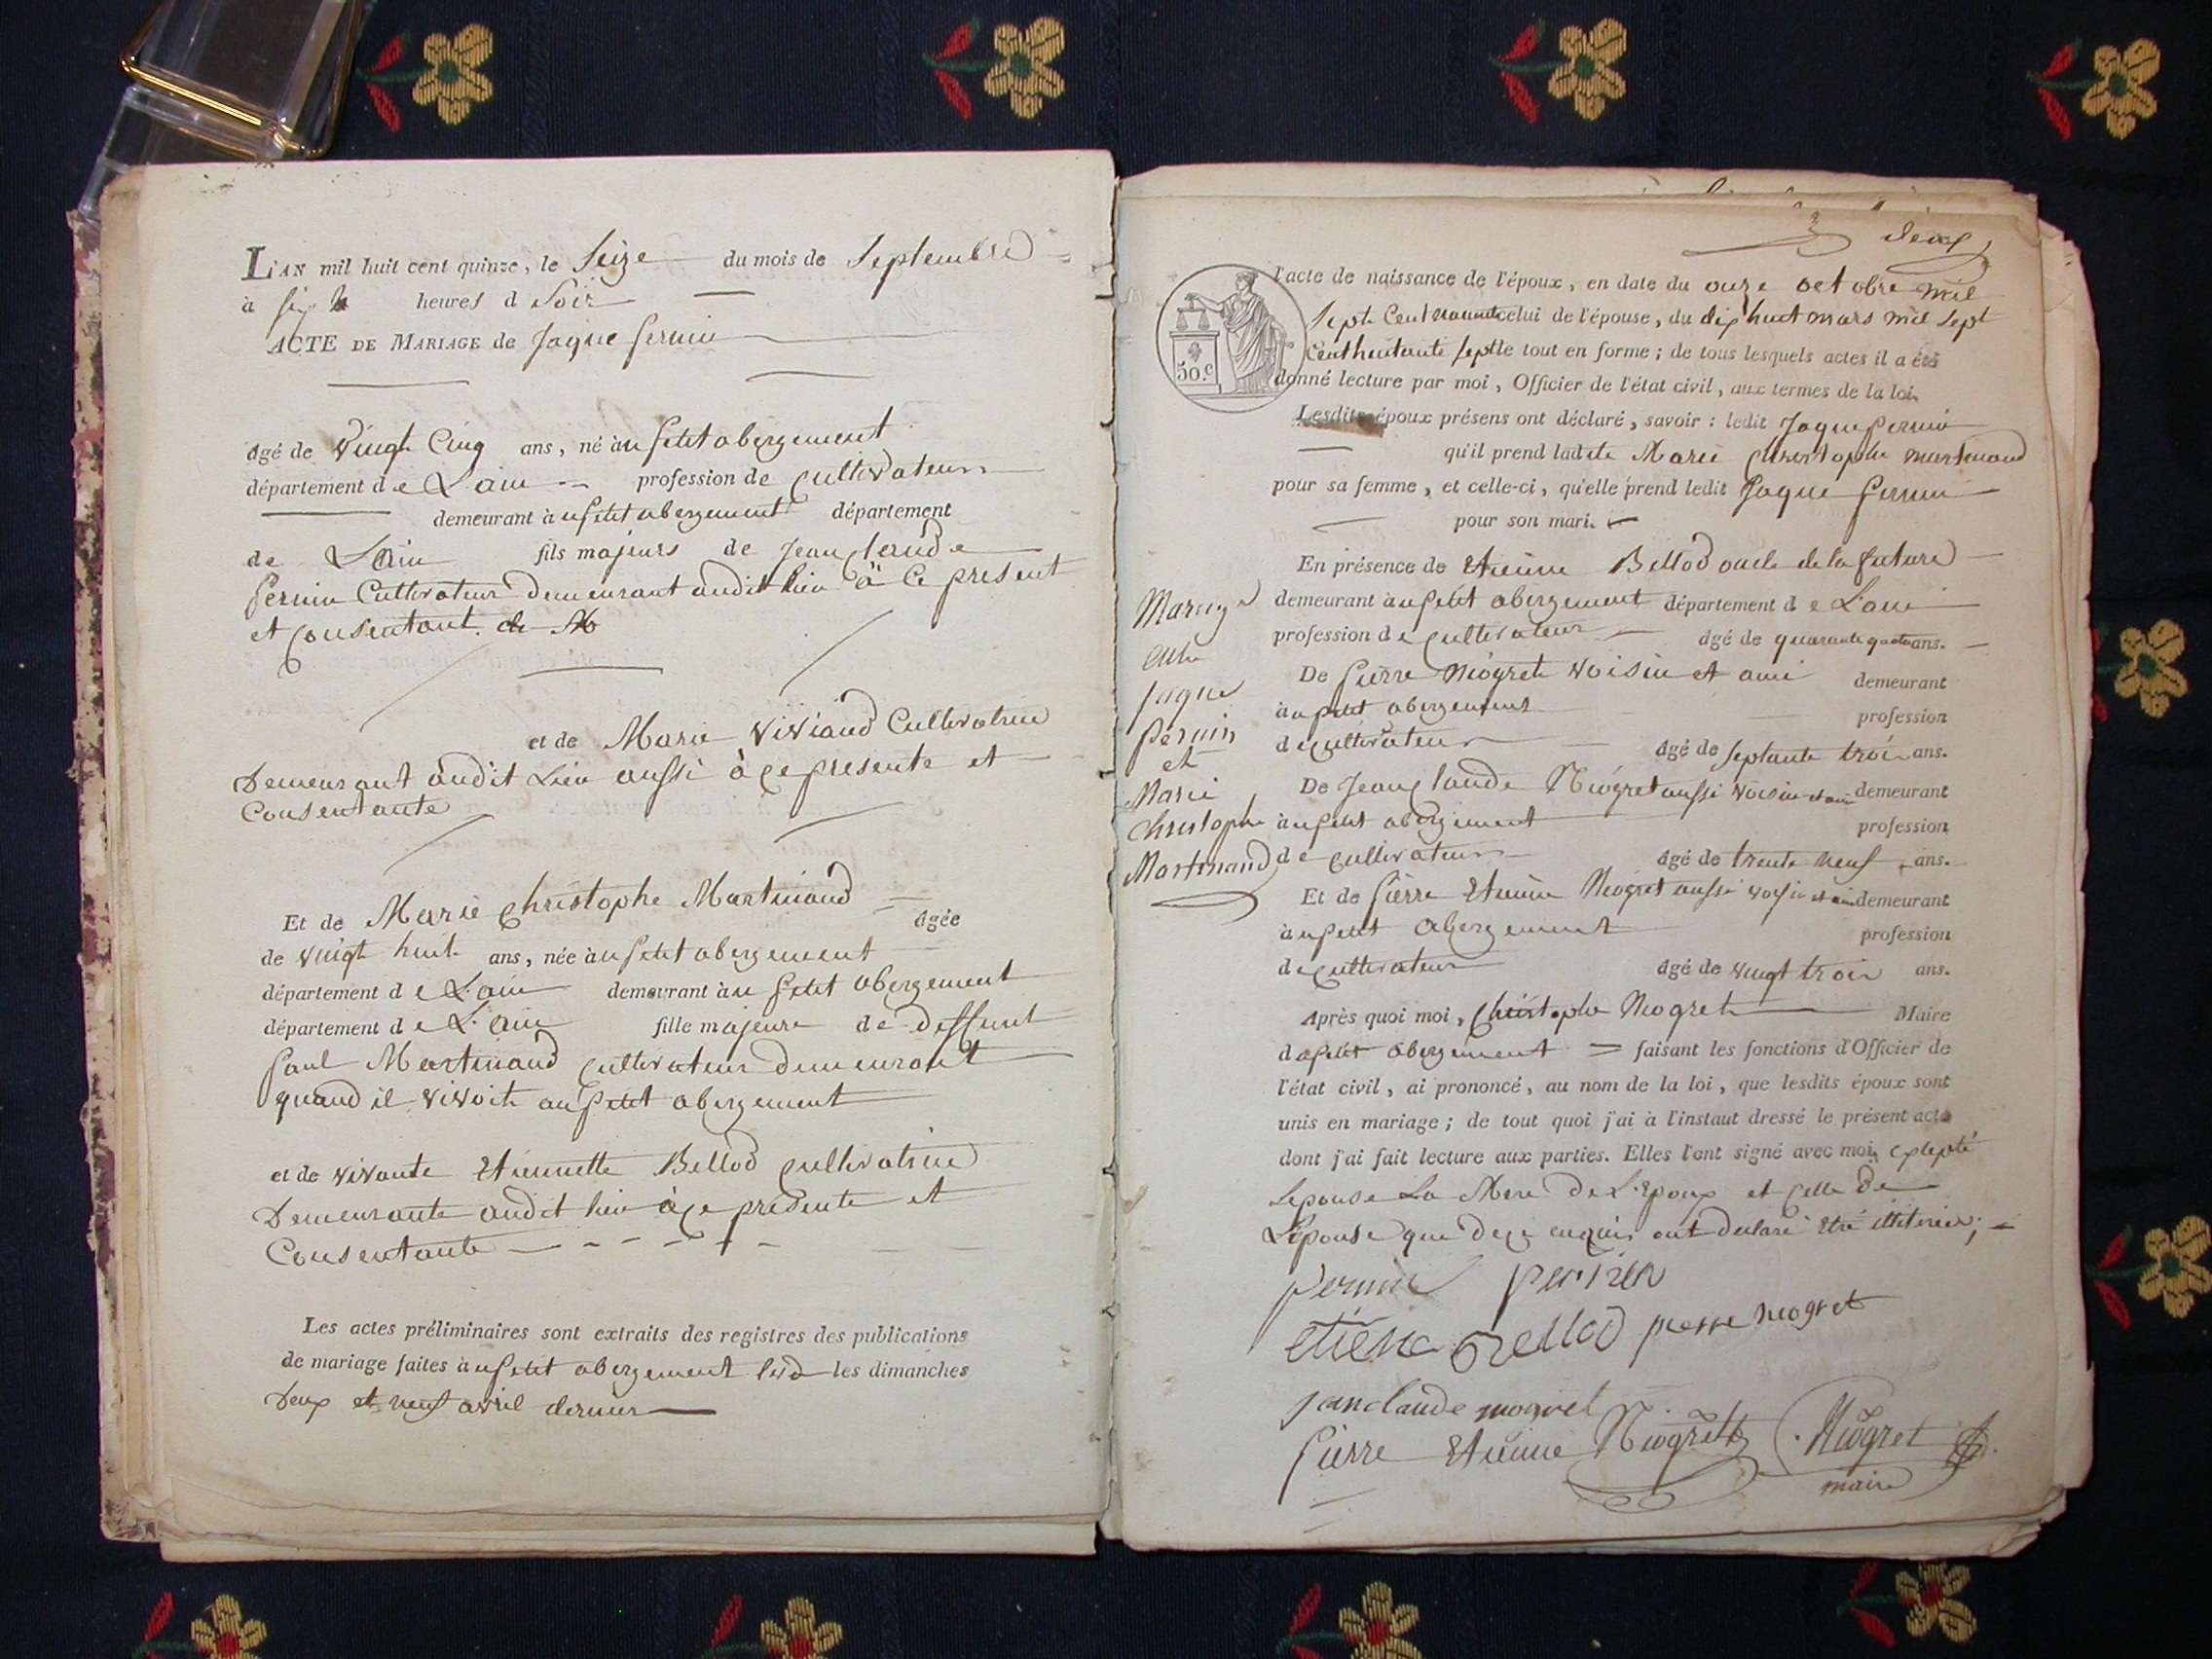 L'AN mil huit cent quinze, le Seize du mois de Septembre
à six heures d Soir
ACTE DE MARIAGE de Jaque Pernin
âgé de Vingt Cinq ans, né au petit abergement
département de L'ain profession de Cultivateur
demeurant au petit abergement département
de L'Ain fils majeur de Jean Claude
Pernin Cultivateur demeurant audit lieu à Ce présent
et Consentant
et de Marie Viviand Cultivatrice
Demeurant audit Lieu aussi à ce presente et
Consentante
Et de Marie Christophe Martinand âgée
de vingt huit ans, née au petit abergement
département de L'ain demeurant au petit abergement
département de L'ain fille majeure de deffunt
Paul Martinand Cultivateur demeurant
quand il vivoit au petit abergement
et de vivante Etiennette Bellod Cultivatrice
Demeurante audit lieu à ce présente et
Consentante
Les actes préliminaires sont extraits des registres des publications
de mariage faites au petit abergement les dimanches
Deux et neuf avril dernier
deux
50.c
l'acte de naissance de l'époux, en date du onze octobre mil
Sept Cent nonante celui de l'épouse, du dix huit mars mil Sept
Cent huitante Sept le tout en forme; de tous lesquels actes il a été
donné lecture par moi, Officier de l'état civil, aux termes de la loi.
Lesdits époux présens ont déclaré, savoir: ledit Jaque Pernin
qu'il prend ladite Marie Christophe Martinand
pour sa femme, et celle-ci, qu'elle prend ledit Jaque Pernin
pour son mari.
En présence de Etienne Bellod oncle de la future
demeurant au petit abergement département de L'ain
profession de Cultivateur âgé de quarante quatre ans.
De Pierre Niogret voisin et ami demeurant
au petit abergement profession
de Cultivateur âgé de septante trois ans.
De Jean Claude Niogret aussi voisin et ami demeurant
au petit abergement profession
de Cultivateur âgé de trente neuf ans.
Et de Pierre Etienne Niogret aussi voisin et ami demeurant
au petit Abergement profession
de Cultivateur âgé de vingt trois ans.
Après quoi moi, Christophe Niogret Maire
du petit abergement faisant les fonctions d'Officier de
l'état civil, ai prononcé, au nom de la loi, que lesdits époux sont
unis en mariage; de tout quoi j'ai à l'instant dressé le présent acte
dont j'ai fait lecture aux parties. Elles l'ont signé avec moi, excepté
Lepouse La Mere de L'Epoux et Celle de
L'épouse que de ce enquis ont declaré être illiterées;
Mariage
entre
Jaque
Pernin
et
Marie
Christophe
Martinand
pernin pernin
etiene Bellod pierre niogret
jan claude niogret
Pierre Etienne Niogret Niogret
maire